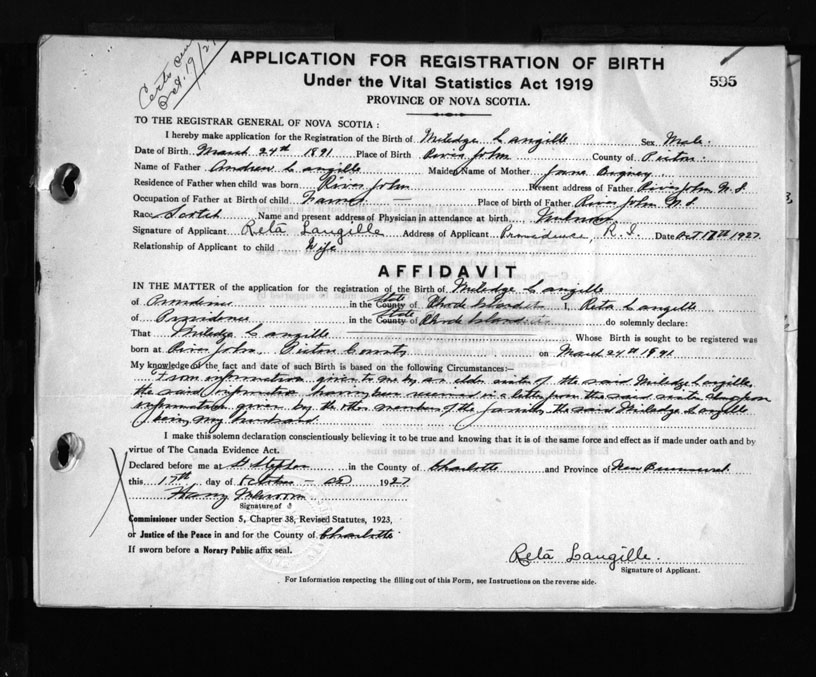 Certs Oct. 19/27
APPLICATION FOR REGISTRATION OF BIRTH
Under the Vital Statistics Act 1919
595
PROVINCE OF NOVA SCOTIA.
TO THE REGISTRAR GENERAL OF NOVA SCOTIA :
I hereby make application for the Registration of the Birth of Miledge Langille Sex Male.
Date of Birth March 24th 1891 Place of Birth River John County of Pictou.
Name of Father Andrew Langille Maiden Name of Mother Jane Bigney
Residence of Father when child was born River John Present address of Father River John N.S.
Occupation of Father at Birth of child Farmer — Place of birth of Father River John N.S.
Race Scotch Name and present address of Physician in attendance at birth Unknown
Signature of Applicant Reta Langille Address of Applicant Providence, R.I. Date Oct 17th 1927.
Relationship of Applicant to child Wife
AFFIDAVIT
IN THE MATTER of the application for the registration of the Birth of Miledge Langille
of Providence in the State County of Rhode Island I, Reta Langille
of Providence in the State County of Rhode Island do solemnly declare:
That Miledge Langille Whose Birth is sought to be registered was
born at River John, Pictou County on March 24th 1891
My knowledge of the fact and date of such Birth is based on the following Circumstances:—
From information given to me by an elder sister of the said Miledge Langille,
the said information having been received in a letter from the said sister also from
information given by the other members of the family, the said Miledge Langille
being my husband
I make this solemn declaration conscientiously believing it to be true and knowing that it is of the same force and effect as if made under oath and by
virtue of The Canada Evidence Act.
Declared before me at St Stephen in the County of Charlotte and Province of New Brunswick
this 17th day of October — AD 1927
Harry
Signature of
Commissioner under Section 5, Chapter 38, Revised Statutes, 1923,
or Justice of the Peace in and for the County of Charlotte
If sworn before a Norary Public affix seal.
Reta Langille.
Signature of Applicant.
For Information respecting the filling out of this Form, see Instructions on the reverse side.